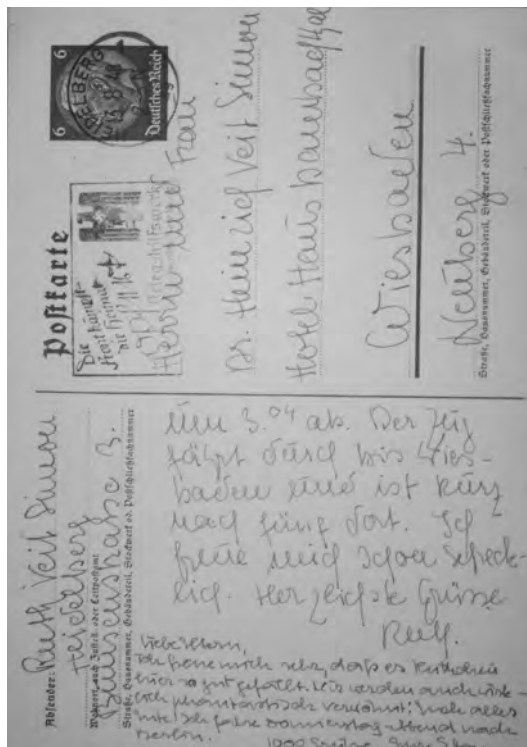 Postkarte
6
6
Deutsches Reich
HEIDELBERG
Die
Front kämpft
die Heimat
Herrn und Frau
Dr. Heinrich Veit Simon
Hotel Haus Dambachtal
Wiesbaden
Neuberg 4.
Straße, Hausnummer, Gebäudeteil, Stockwerk oder Postschließfachnummer
Absender: Ruth Veit Simon
Heidelberg
Wohnort, auch Zustell- oder Leitpostamt
Bunsenstraße 3.
Straße, Hausnummer, Gebäudeteil, Stockwerk od. Postschließfachnummer
um 3.04 ab. Der Zug
fährt durch bis Wies-
baden und ist kurz
nach fünf dort. Ich
freue mich schon schreck-
lich. Herzlichste Grüsse
Ruth.
Liebe Eltern,
Ich freue mich sehr, dass es
hier so gut gefällt. Wir werden auch
phantastisch verwöhnt.
Ich fahre Donnerstag abend nach
Berlin.